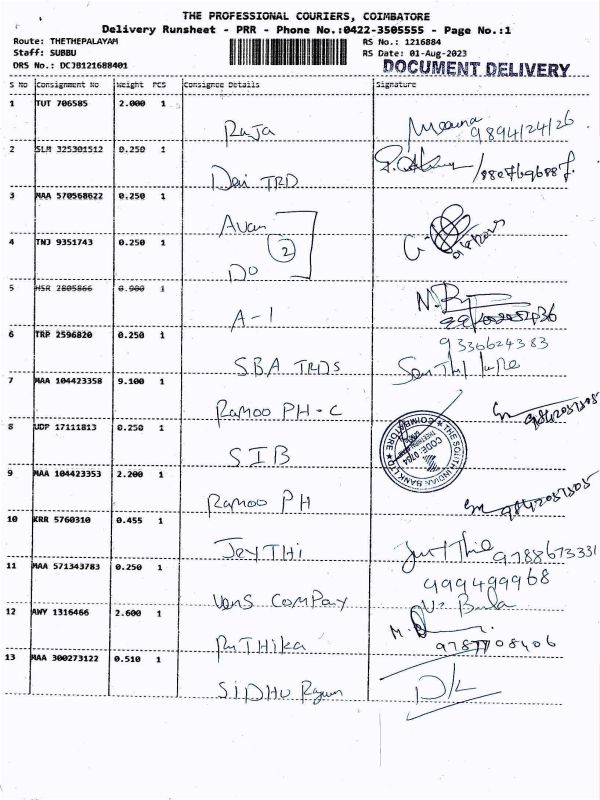 THE PROFESSIONAL COURIERS, COIMBATORE
Delivery Runsheet - PRR - Phone No.:0422-3505555 - Page No.:1
Route: THETHEPALAYAM
RS No.: 1216884
Staff: SUBBU
RS Date: 01-Aug-2023
DRS No.: DCJB121688401
DOCUMENT DELIVERY
S No Consignment No Weight PCS Consignee Details Signature
1 TUT 706585 2.000 1
Raja
Meena 9894124126
2 SLM 325301512 0.250 1
Dei TRD
3 MAA 570568622 0.250 1
Avan
2
4 TNJ 9351743 0.250 1
DO
5 HSR 2805866 0.900 1
A-1
6 TRP 2596820 0.250 1
9336624383
SBA TRDS
7 MAA 104423358 9.100 1
Ramoo PH-C
8 UDP 17111813 0.250 1
SIB
THE SOUTH INDIAN BANK LTD
COIMBATORE
CODE: 0704
9 MAA 104423353 2.200 1
Ramoo PH
10 KRR 5760310 0.455 1
JeyTHi
9788673331
11 MAA 571343783 0.250 1
999499968
Vens ComPay
12 AWY 1316466 2.600 1
RuTHika
9787708406
13 MAA 300273122 0.510 1
SIDHU
D/L